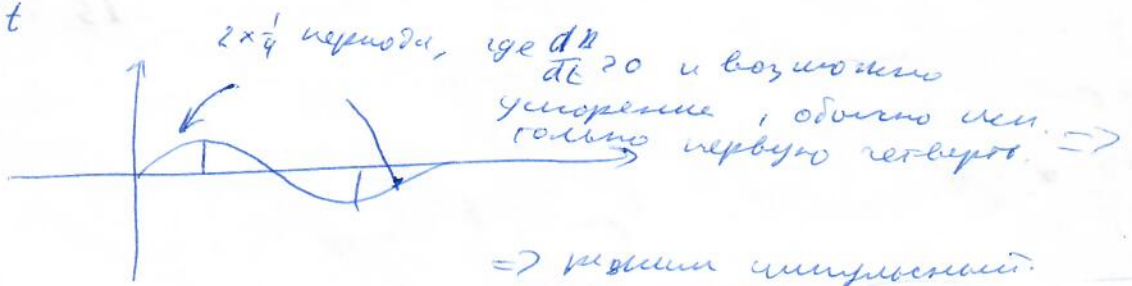 t
2×1/4 периода, где dB/dt > 0 и возможно
ускорение, обычно исп.
только первую четверть. =>
=> режим импульсный.